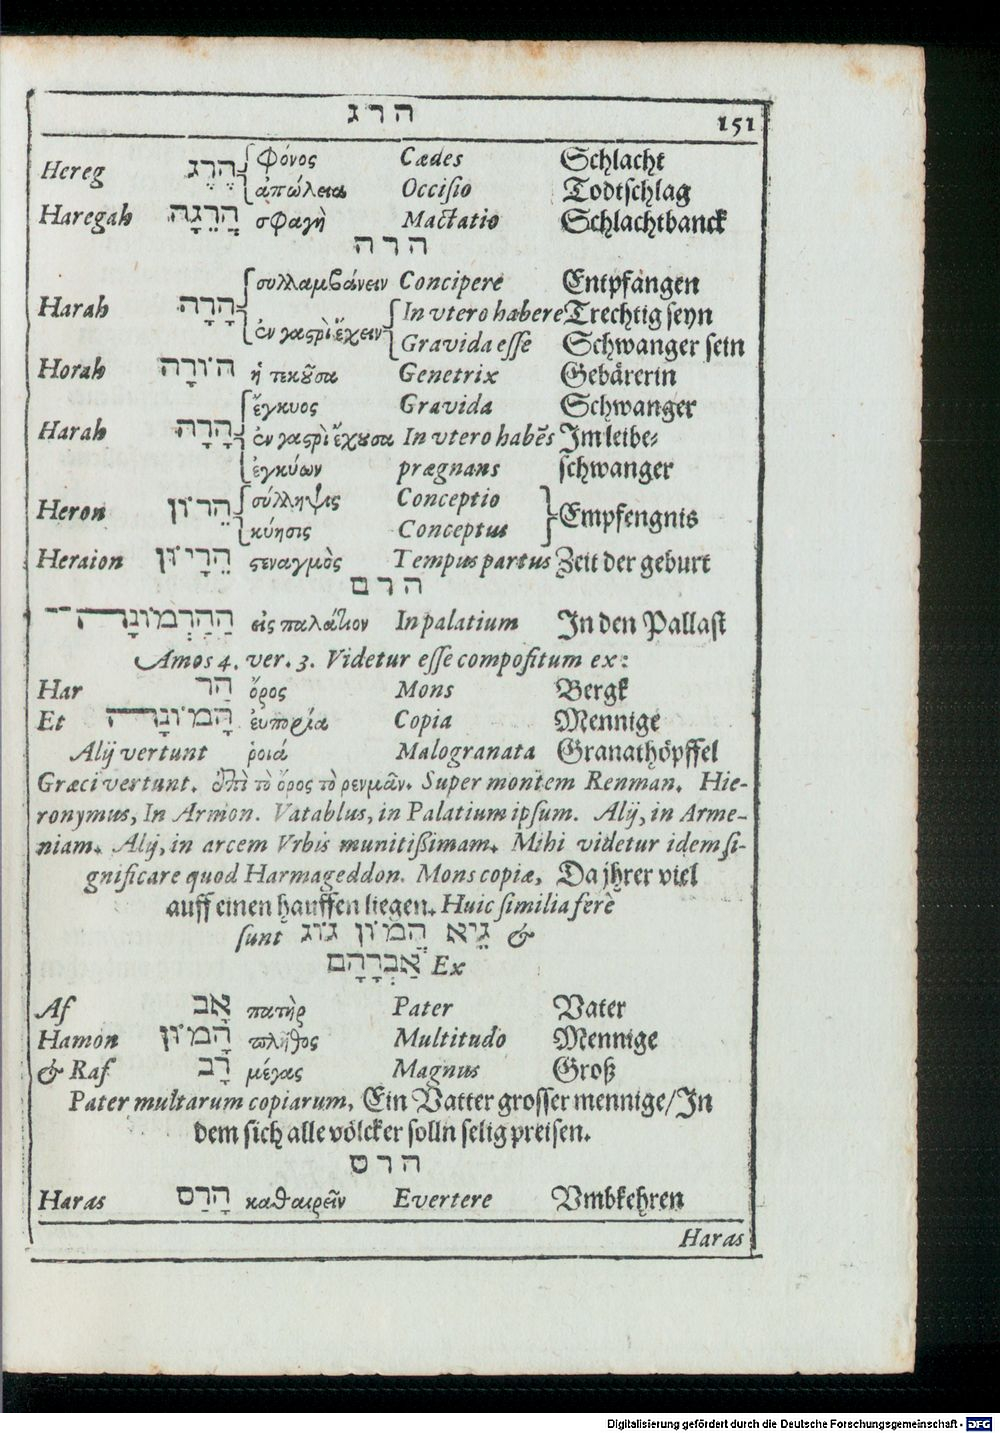 הרג
151
Hereg הֶרֶג φόνος Cædes Schlacht
ἀπώλεια Occiſio Todtſchlag
Haregah הֲרֵגָה σφαγὴ Mactatio Schlachtbanck
הרה
συλλαμβάνειν Concipere Entpfangen
Harah הָרָה ἐν γαςρὶ ἔχειν In vtero habere Trechtig ſeyn
Gravida eſſe Schwanger ſein
Horah הוֹרָה ἡ τεκοῦσα Genetrix Gebärerin
ἔγκυος Gravida Schwanger
Harah הָרָה ἐν γαςρὶ ἔχουσα In vtero habẽs Im leibe⸗
ἐγκύων prægnans ſchwanger
Heron הֵרוֹן σύλληψις Conceptio Empfengnis
κύησις Conceptus
Heraion הֵרָיוֹן ςεναγμὸς Tempus partus Zeit der geburt
הרם
הַהַרְמוֹנָה־ εἰς παλάτιον In palatium In den Pallaſt
Amos 4. ver. 3. Videtur eſſe compoſitum ex:
Har הַר ὄρος Mons Bergk
Et הָמוֹנָה ἐυπορία Copia Mennige
Alij vertunt ῥοιά Malogranata Granathöpffel
Græci vertunt. Ἐπὶ τὸ ὄρος τὸ ρενμᾶν. Super montem Renman. Hie-
ronymus, In Armon. Vatablus, in Palatium ipſum. Alij, in Arme-
niam. Alij, in arcem Vrbis munitißimam. Mihi videtur idem ſi-
gnificare quod Harmageddon. Mons copiæ, Da jhrer viel
auff einen hauffen liegen. Huic ſimilia ferè
ſunt גֵיא הֲמוֹן גוֹג &
אַבְרָהָם Ex
Af אָב πατὴρ Pater Vater
Hamon הָמוֹן πλῆθος Multitudo Mennige
& Raf רָב μέγας Magnus Groß
Pater multarum copiarum, Ein Vatter groſſer mennige/ In
dem ſich alle völcker ſolln ſelig preiſen.
הרס
Haras הָרַס καθαιρεῖν Evertere Vmbkehren
Haras
Digitalisierung gefördert durch die Deutsche Forschungsgemeinschaft - DFG